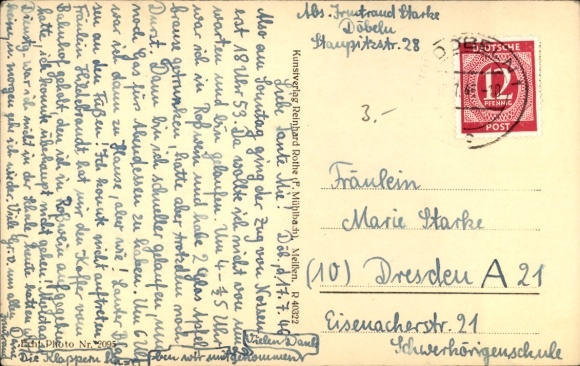 Abs. Irmtraud Starke
Döbeln
Staupitzstr. 28
DÖBELN
DEUTSCHE
12
PFENNIG
POST
3.-
Fräulein
Marie Starke
(10) Dresden A 21
Eisenacherstr. 21
Schwerhörigenschule
Kunstverlag Reinhard Rothe (F. Mühlbau), Meißen. R 40322
Echt Photo Nr. 2095
Liebe Tante Mie! Döb., d. 17.7.46
Also am Sonntag ging der Zug von Nossen
erst 18 Uhr 53. Da wollte ich nicht von
warten und bin gelaufen. Um 4 - ½5 Uhr
war ich in Roßwein und habe 2 Glas Apfel
brause getrunken, hatte aber trotzdem noch
Durst. Dann bin ich schneller gelaufen, um
noch Gas fürs Abendessen zu haben. Um 6 Uhr
war ich dann zu Hause, aber wie! Lauter
an den Füßen! Ich konnte nicht auftreten.
Fräulein Hildebrandt hat mir den Koffer vom
Bahnhof geholt, den ich in Roßwein aufgegeben
hatte, ich konnte überhaupt nicht gehen. Montag,
Dienstg. war ich nicht in der Schule, heute hatten
morgen gehe ich wieder. Viele Gr. v. uns allen, Deine
Irmtraud
Vielen Dank
Die Klappern haben wir mitgenommen